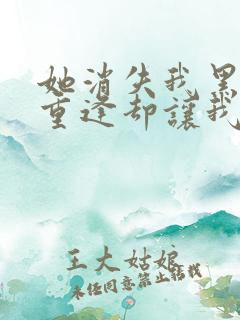 她消失我黑
重逢却讓我
王大姑娘
未經同意禁止轉載